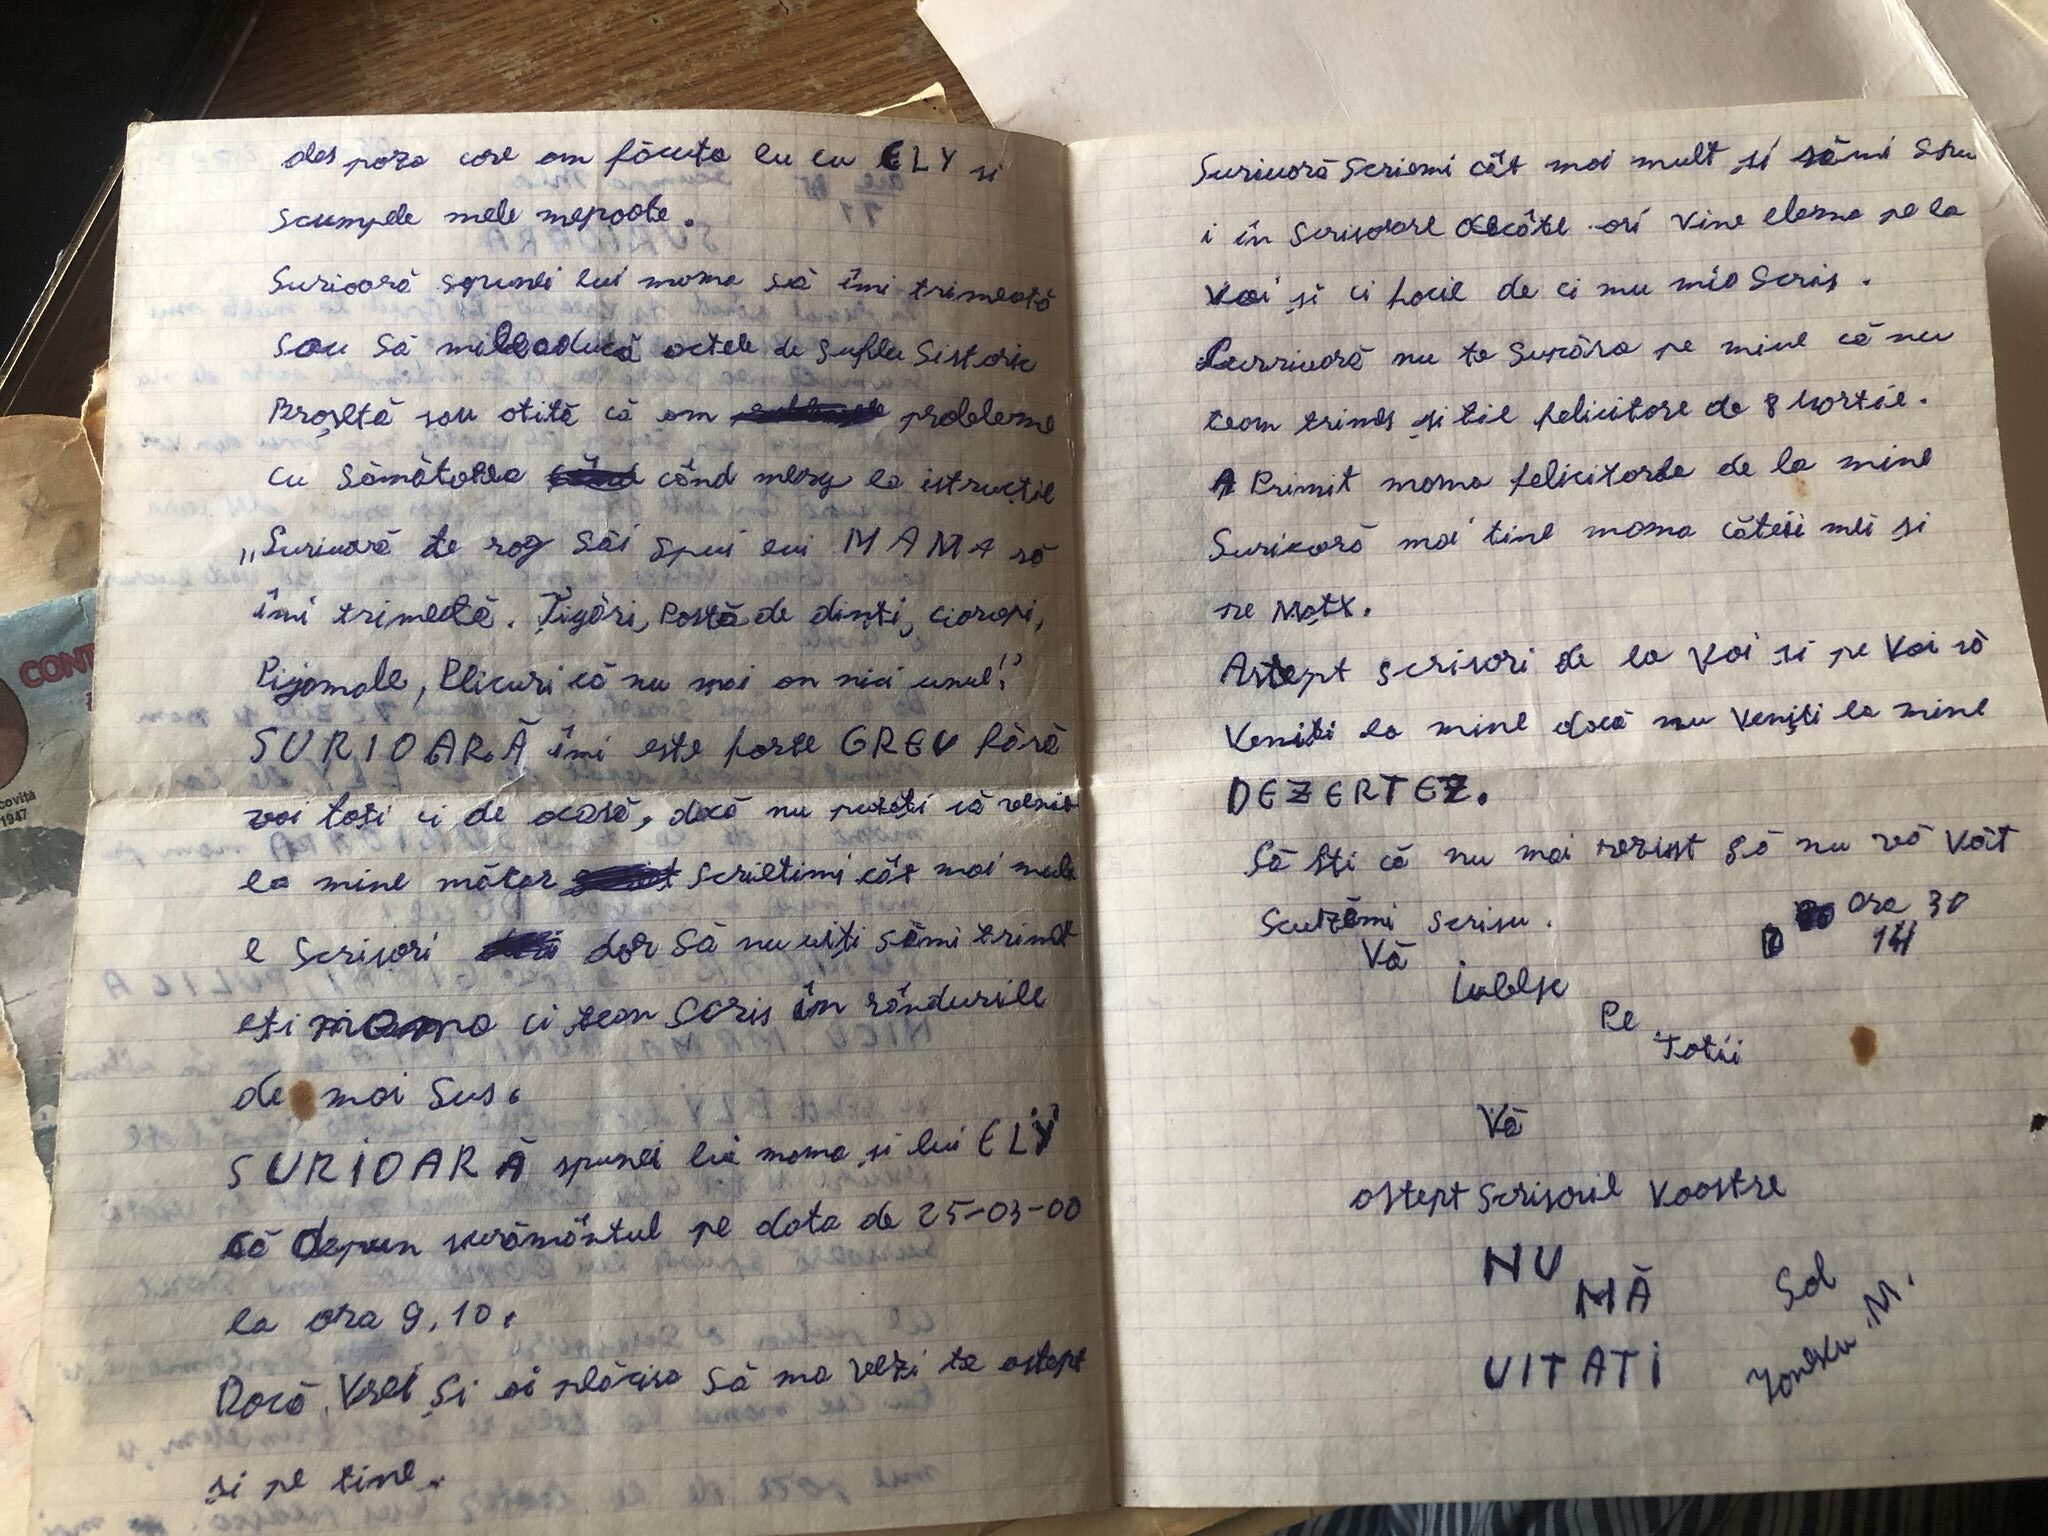 des poza core om făcuta eu cu ELY si
scumpele mele nepoate.
Surioară spunei lui moma să îmi trimeată
sou să mileaducă octele de Suflu Sistoric
sou otită că om probleme
cu Sămătatea când merg la istrucție
„Surioară te rog săi spui lui MAMA să
îmi trimeată. Țigări, Postă de dinți, ciorapi,
Pijomale, Plicuri că nu moi on nici unul!"
SURIOARĂ îmi este forte GREU fără
voi toți ci de ocasă, docă nu puteți să venit
la mine mătar scrietimi cât moi mult
e scrisori dor Să nu uiți sămi trimet
eți moma ci team scris în rândurile
de moi Sus.
SURIOARĂ spunei lui moma și lui ELY
că depun jurământul pe data de 25-03-00
la ora 9,10.
Docă Vrei și oi plăcira să ma vezi te ostept
și pe tine.
Surioară Scriemi cât moi mult și sămi spu
i în Scrisoare decâte ori vine elena pe la
voi și ci focie de ci nu mio Scris.
Surrioară nu te Supăra pe mine că nu
team trimes și tie felicitore de 8 Mortie.
A Primit moma felicitorea de la mine
Surioară moi tine moma cățeii mei și
pe Motx.
Astept scrisori de la Voi și pe Voi să
Veniti la mine docă nu Veniți la mine
DEZERTEZ.
Să ști că nu moi rezist să nu vă Văt
Scuzămi scrisu.
Ora 30
14
Vă
Iubesc
Pe
Totii
Vă
ostept Scrisorile Voostre
NU
MĂ
UITATI
Sol
Ionexu .M.
CONT
covița
1947